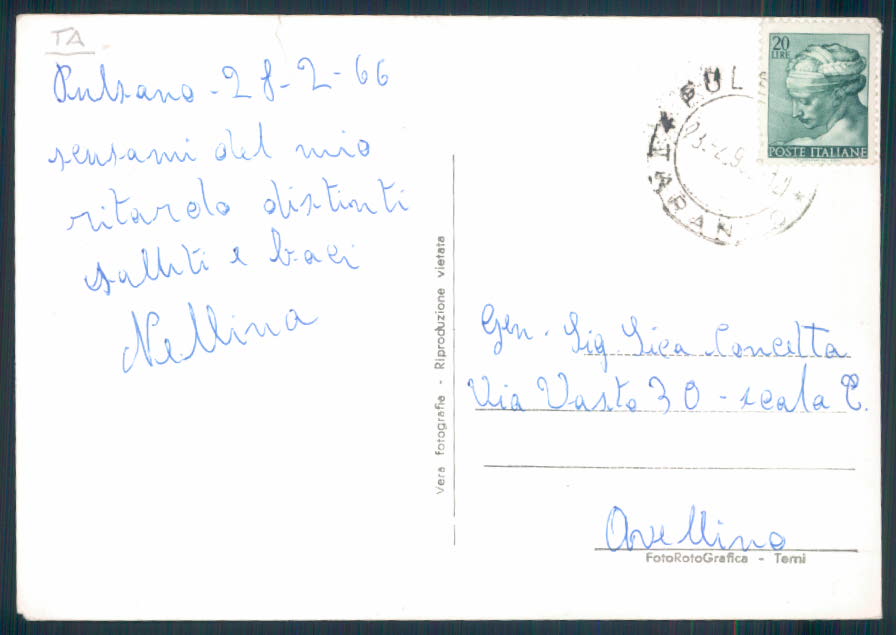 TA
Pulsano - 28-2-66
scusami del mio
ritardo distinti
saluti e baci
Nellina
Vera fotografia - Riproduzione vietata
20
LIRE
POSTE ITALIANE
Gen. Sig. Sica Concetta
Via Vasto 30 - scala C.
Avellino
FotoRotoGrafica - Terni